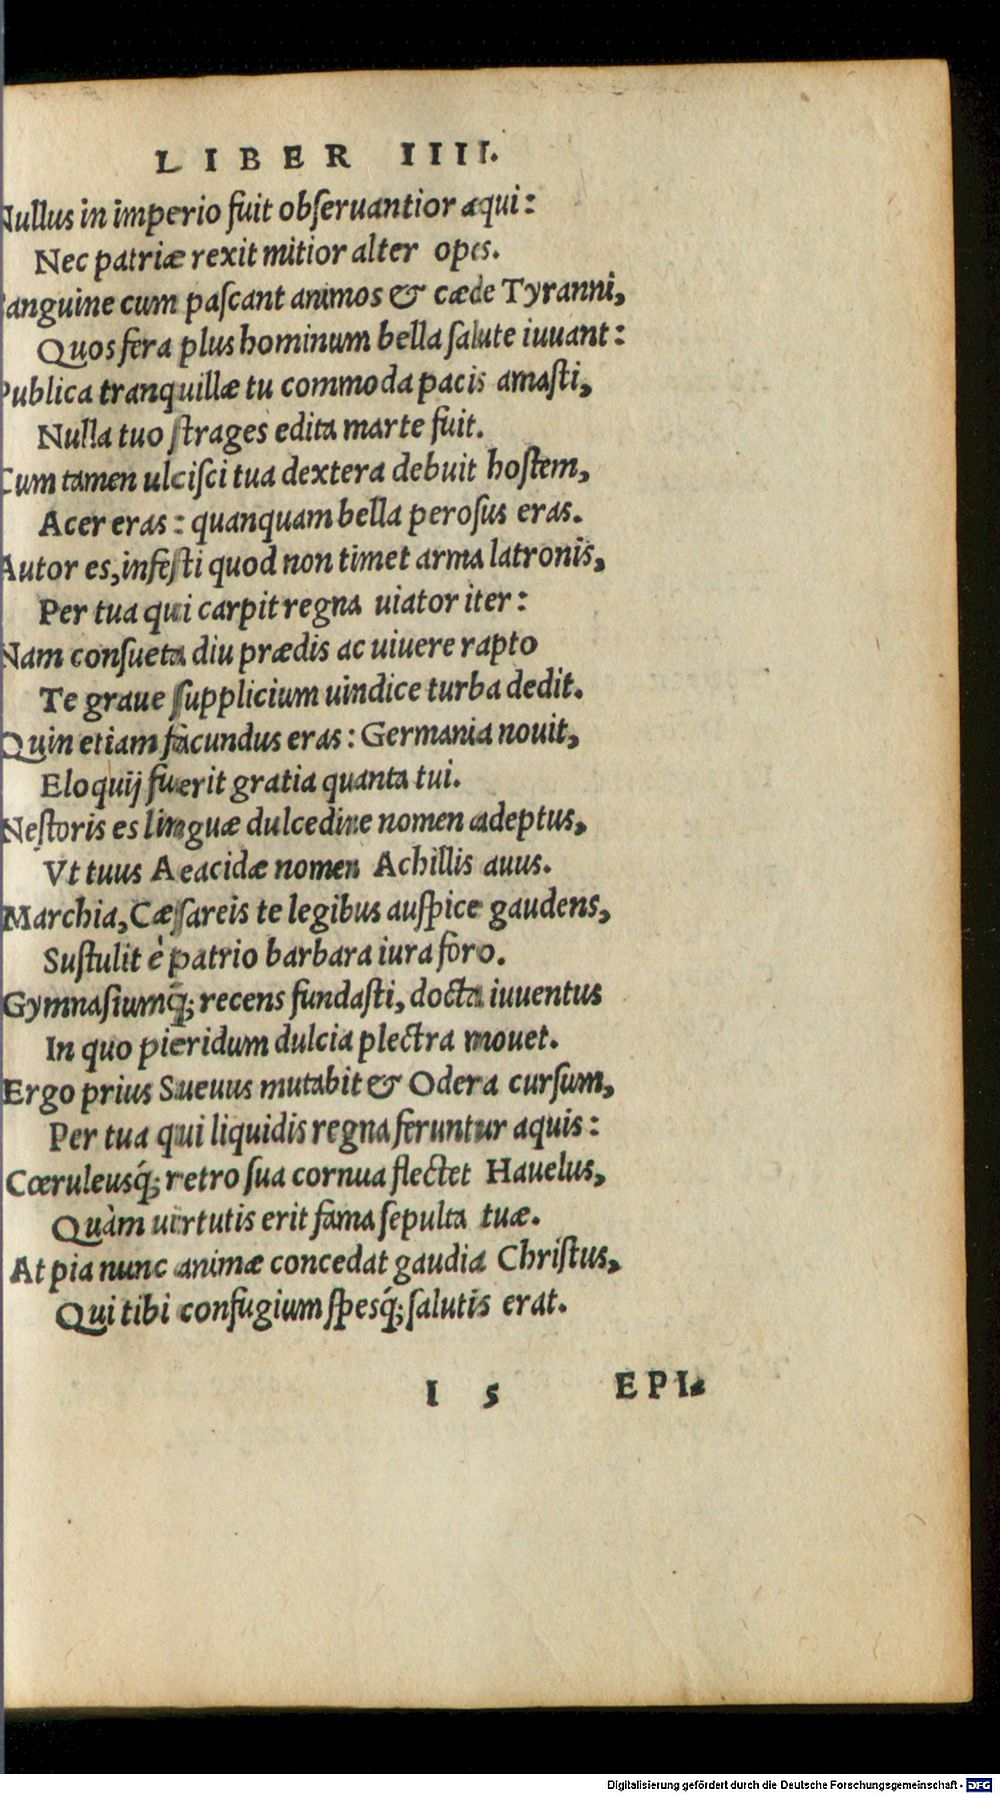 LIBER IIII.
Nullus in imperio fuit obſeruantior æqui:
Nec patriæ rexit mitior alter opes.
Sanguine cum paſcant animos & cæde Tyranni,
Quos fera plus hominum bella ſalute iuuant:
Publica tranquillæ tu commoda pacis amaſti,
Nulla tuo ſtrages edita marte fuit.
Cum tamen ulciſci tua dextera debuit hoſtem,
Acer eras: quanquam bella peroſus eras.
Autor es, infeſti quod non timet arma latronis,
Per tua qui carpit regna uiator iter:
Nam conſueta diu prædis ac uiuere rapto
Te graue ſupplicium uindice turba dedit.
Quin etiam facundus eras: Germania nouit,
Eloquij fuerit gratia quanta tui.
Neſtoris es linguæ dulcedine nomen adeptus,
Vt tuus Aeacidæ nomen Achillis auus.
Marchia, Cæſareis te legibus auſpice gaudens,
Suſtulit è patrio barbara iura foro.
Gymnaſiumq́; recens fundaſti, docta iuuentus
In quo pieridum dulcia plectra mouet.
Ergo prius Sueuus mutabit & Odera curſum,
Per tua qui liquidis regna feruntur aquis:
Cœruleusq́; retro ſua cornua flectet Hauelus,
Quàm uirtutis erit fama ſepulta tuæ.
At pia nunc animæ concedat gaudia Chriſtus,
Qui tibi confugium ſpesq́; ſalutis erat.
I 5 EPI.
Digitalisierung gefördert durch die Deutsche Forschungsgemeinschaft - DFG